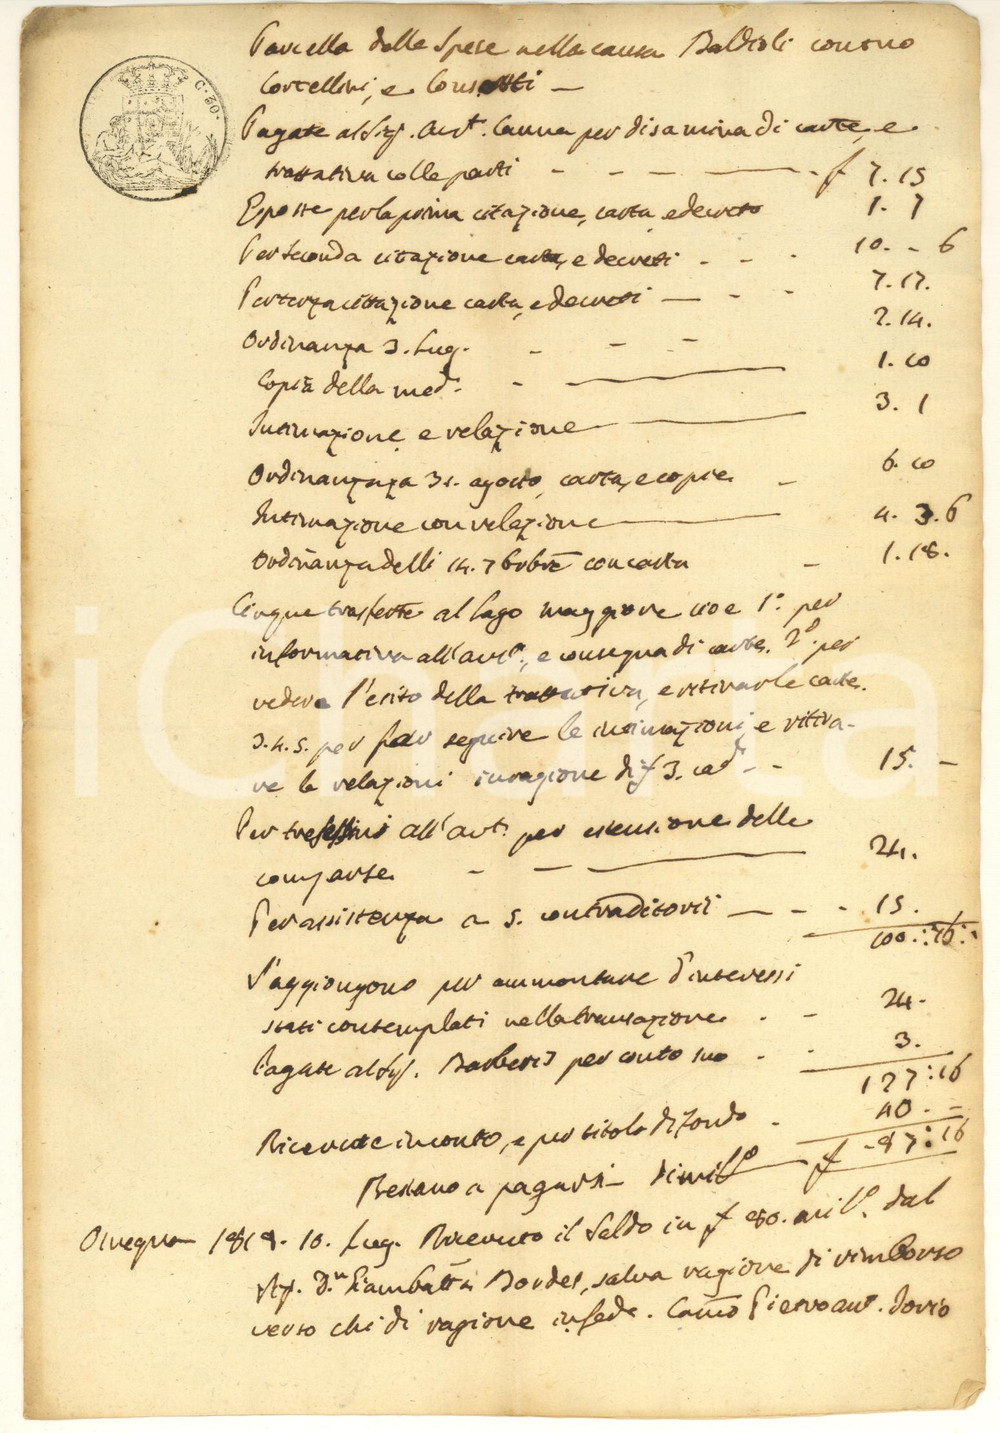 C. 30.
Parcella delle Spese nella causa Baldioli contro
Cortellini, e Consorti —
Pagate al Sig. Avt. Canna per disamina di carte, e
trattativa colle parti - - - — . £ 7. 15
Esposte per la prima citazione, carta, e decreto 1. 7
Per seconda citazione carta, e decreti - - - 10. - 6
Per terza citazione carta, e decreti — - - 7. 17.
Ordinanza 3. Lug. - - - 2. 14.
Copia della med. - — 1. 10
Intimazione e relazione — 3. 1
Ordinanza 31. agosto, carta, e copie - 6. 10
Intimazione con relazione — 4. 3. 6
Ordinanza delli 14. 7bre con carta - 1. 18.
Cinque trasferte al Lago maggiore cioe 1.° per
informativa all'avt., e consegna di carte. 2.° per
vedere l'esito della trattativa, e ritirar le carte.
3. 4. 5. per far seguire le intimazioni, e ritira-
re le relazioni in ragione di £ 3. cad. - - 15. -
Per tre all'avt. per estensione delle
comparse - - — 24.
Per assistenza a 5. contraditorii — - - 15.
100.: 16:
S'aggiongono per ammontare d'interessi
stati contemplati nella transazione . - 24.
Pagate al Sig. Barberis per conto suo . . 3.
127: 16
Ricevute in conto, e per titolo di fondo . 40. -
Restano a pagarsi di mil.° — £ 87: 16
Omegna 1818. 10. Lug. Ricevuto il Saldo in £ 80. mil.° dal
Sig. D.n Giambatta Bordes, salva ragione di rimborso
verso chi di ragione in fede. Pietro ant.